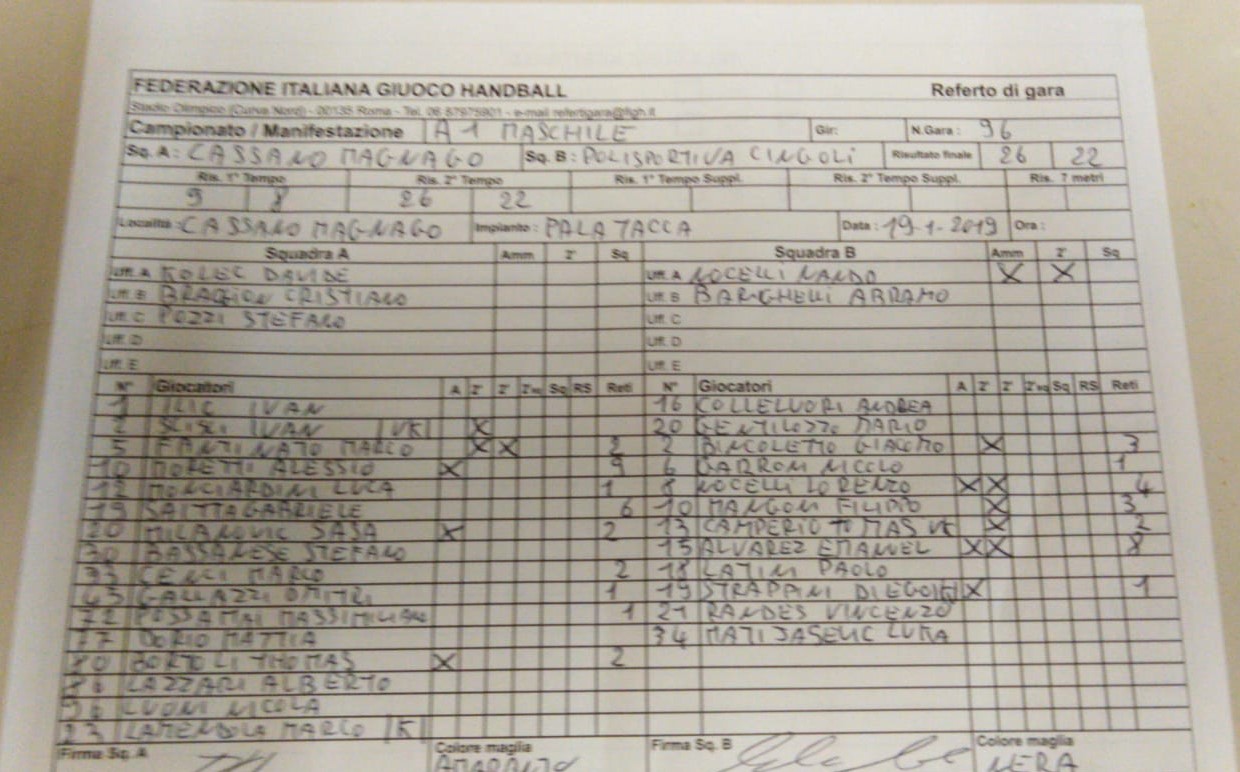 FEDERAZIONE ITALIANA GIUOCO HANDBALL Referto di gara
Stadio Olimpico (Curva Nord) - 00135 Roma - Tel. 06 87975901 - e-mail refertigara@figh.it
Campionato / Manifestazione A1 MASCHILE Gir: N.Gara: 96
Sq. A: CASSANO MAGNAGO Sq. B: POLISPORTIVA CINGOLI Risultato finale 26 22
Ris. 1° Tempo Ris. 2° Tempo Ris. 1° Tempo Suppl. Ris. 2° Tempo Suppl. Ris. 7 metri
9 8 26 22
Località: CASSANO MAGNAGO Impianto: PALA TACCA Data: 19-1-2019 Ora:
Squadra A Amm 2' Sq Squadra B Amm 2' Sq
Uff. A KOLEC DAVIDE Uff. A NOCELLI NANDO X X
Uff. B BRAGGION CRISTIANO Uff. B BARIGHELLI ABRAMO
Uff. C POZZI STEFANO Uff. C
Uff. D Uff. D
Uff. E Uff. E
N° Giocatori A 2' 2' 2'sq Sq RS Reti N° Giocatori A 2' 2' 2'sq Sq RS Reti
1 ILIC IVAN 16 COLLELUORI ANDREA
2 SCISCI IVAN VK X 20 GENTILOZZO MARIO
5 FANTINATO MARCO X X 2 2 BINCOLETTO GIACOMO X 3
10 MORETTI ALESSIO X 9 6 GARRONI NICCLO 1
12 MONCIARDINI LUCA 1 8 NOCELLI LORENZO X X 4
19 SAITTA GABRIELE 6 10 MANGONI FILIPPO X 3
20 MILANOVIC SASA X 2 13 CAMPERIO TOMAS VK X 2
30 BASSANESE STEFANO 15 ALVAREZ EMANUEL X X 8
33 CENCI MARCO 2 18 LATINI PAOLO
43 GALLAZZI DMITRI 1 19 STRAPPINI DIEGO K X 1
72 POSSAMAI MASSIMILIANO 1 21 RANDES VINCENZO
77 DORIO MATTIA 34 MATIJASEVIC LUKA
80 BORTOLI THOMAS X 2
86 LAZZARI ALBERTO
94 LUONI NICOLA
23 LAMENDOLA MARCO K
Firma Sq. A Colore maglia Firma Sq. B Colore maglia
AMARANTO NERA